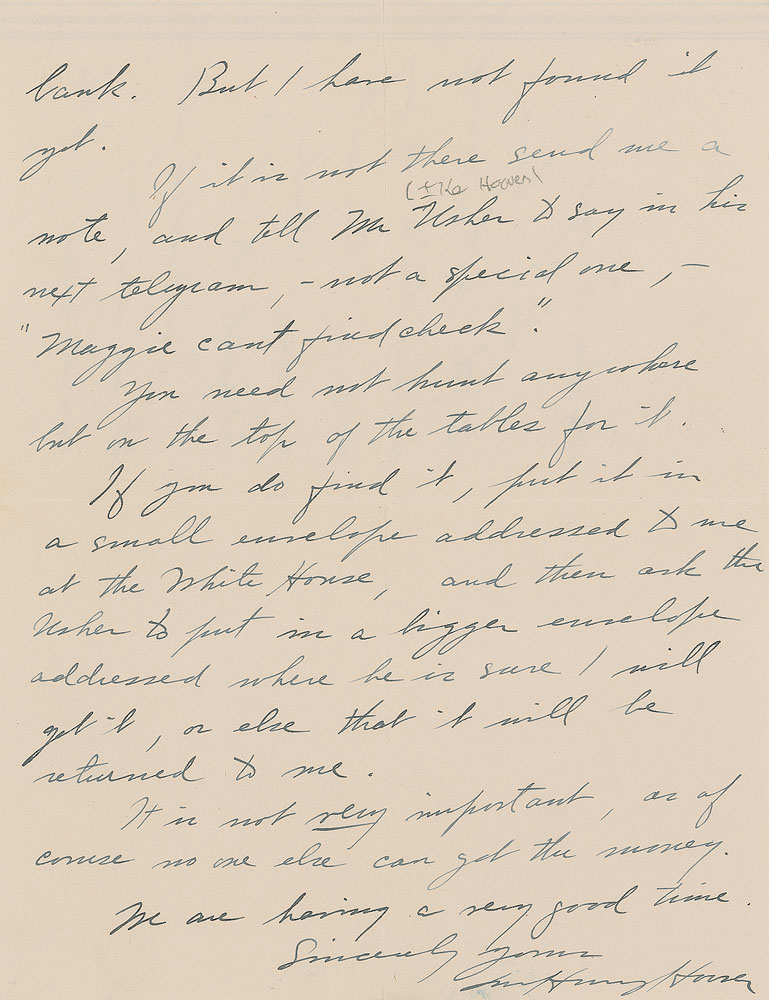 bank. But I have not found it
yet.
If it is not there send me a
note, and tell Mr Usher to say in his
next telegram, - not a special one, -
"Maggie cant find check".
You need not hunt anywhere
but on the top of the tables for it.
If you do find it, put it in
a small envelope addressed to me
at the White House, and then ask the
Usher to put in a bigger envelope
addressed where he is sure I will
get it, or else that it will be
returned to me.
It is not very important, as of
course no one else can get the money.
We are having a very good time.
Sincerely yours
Hoover